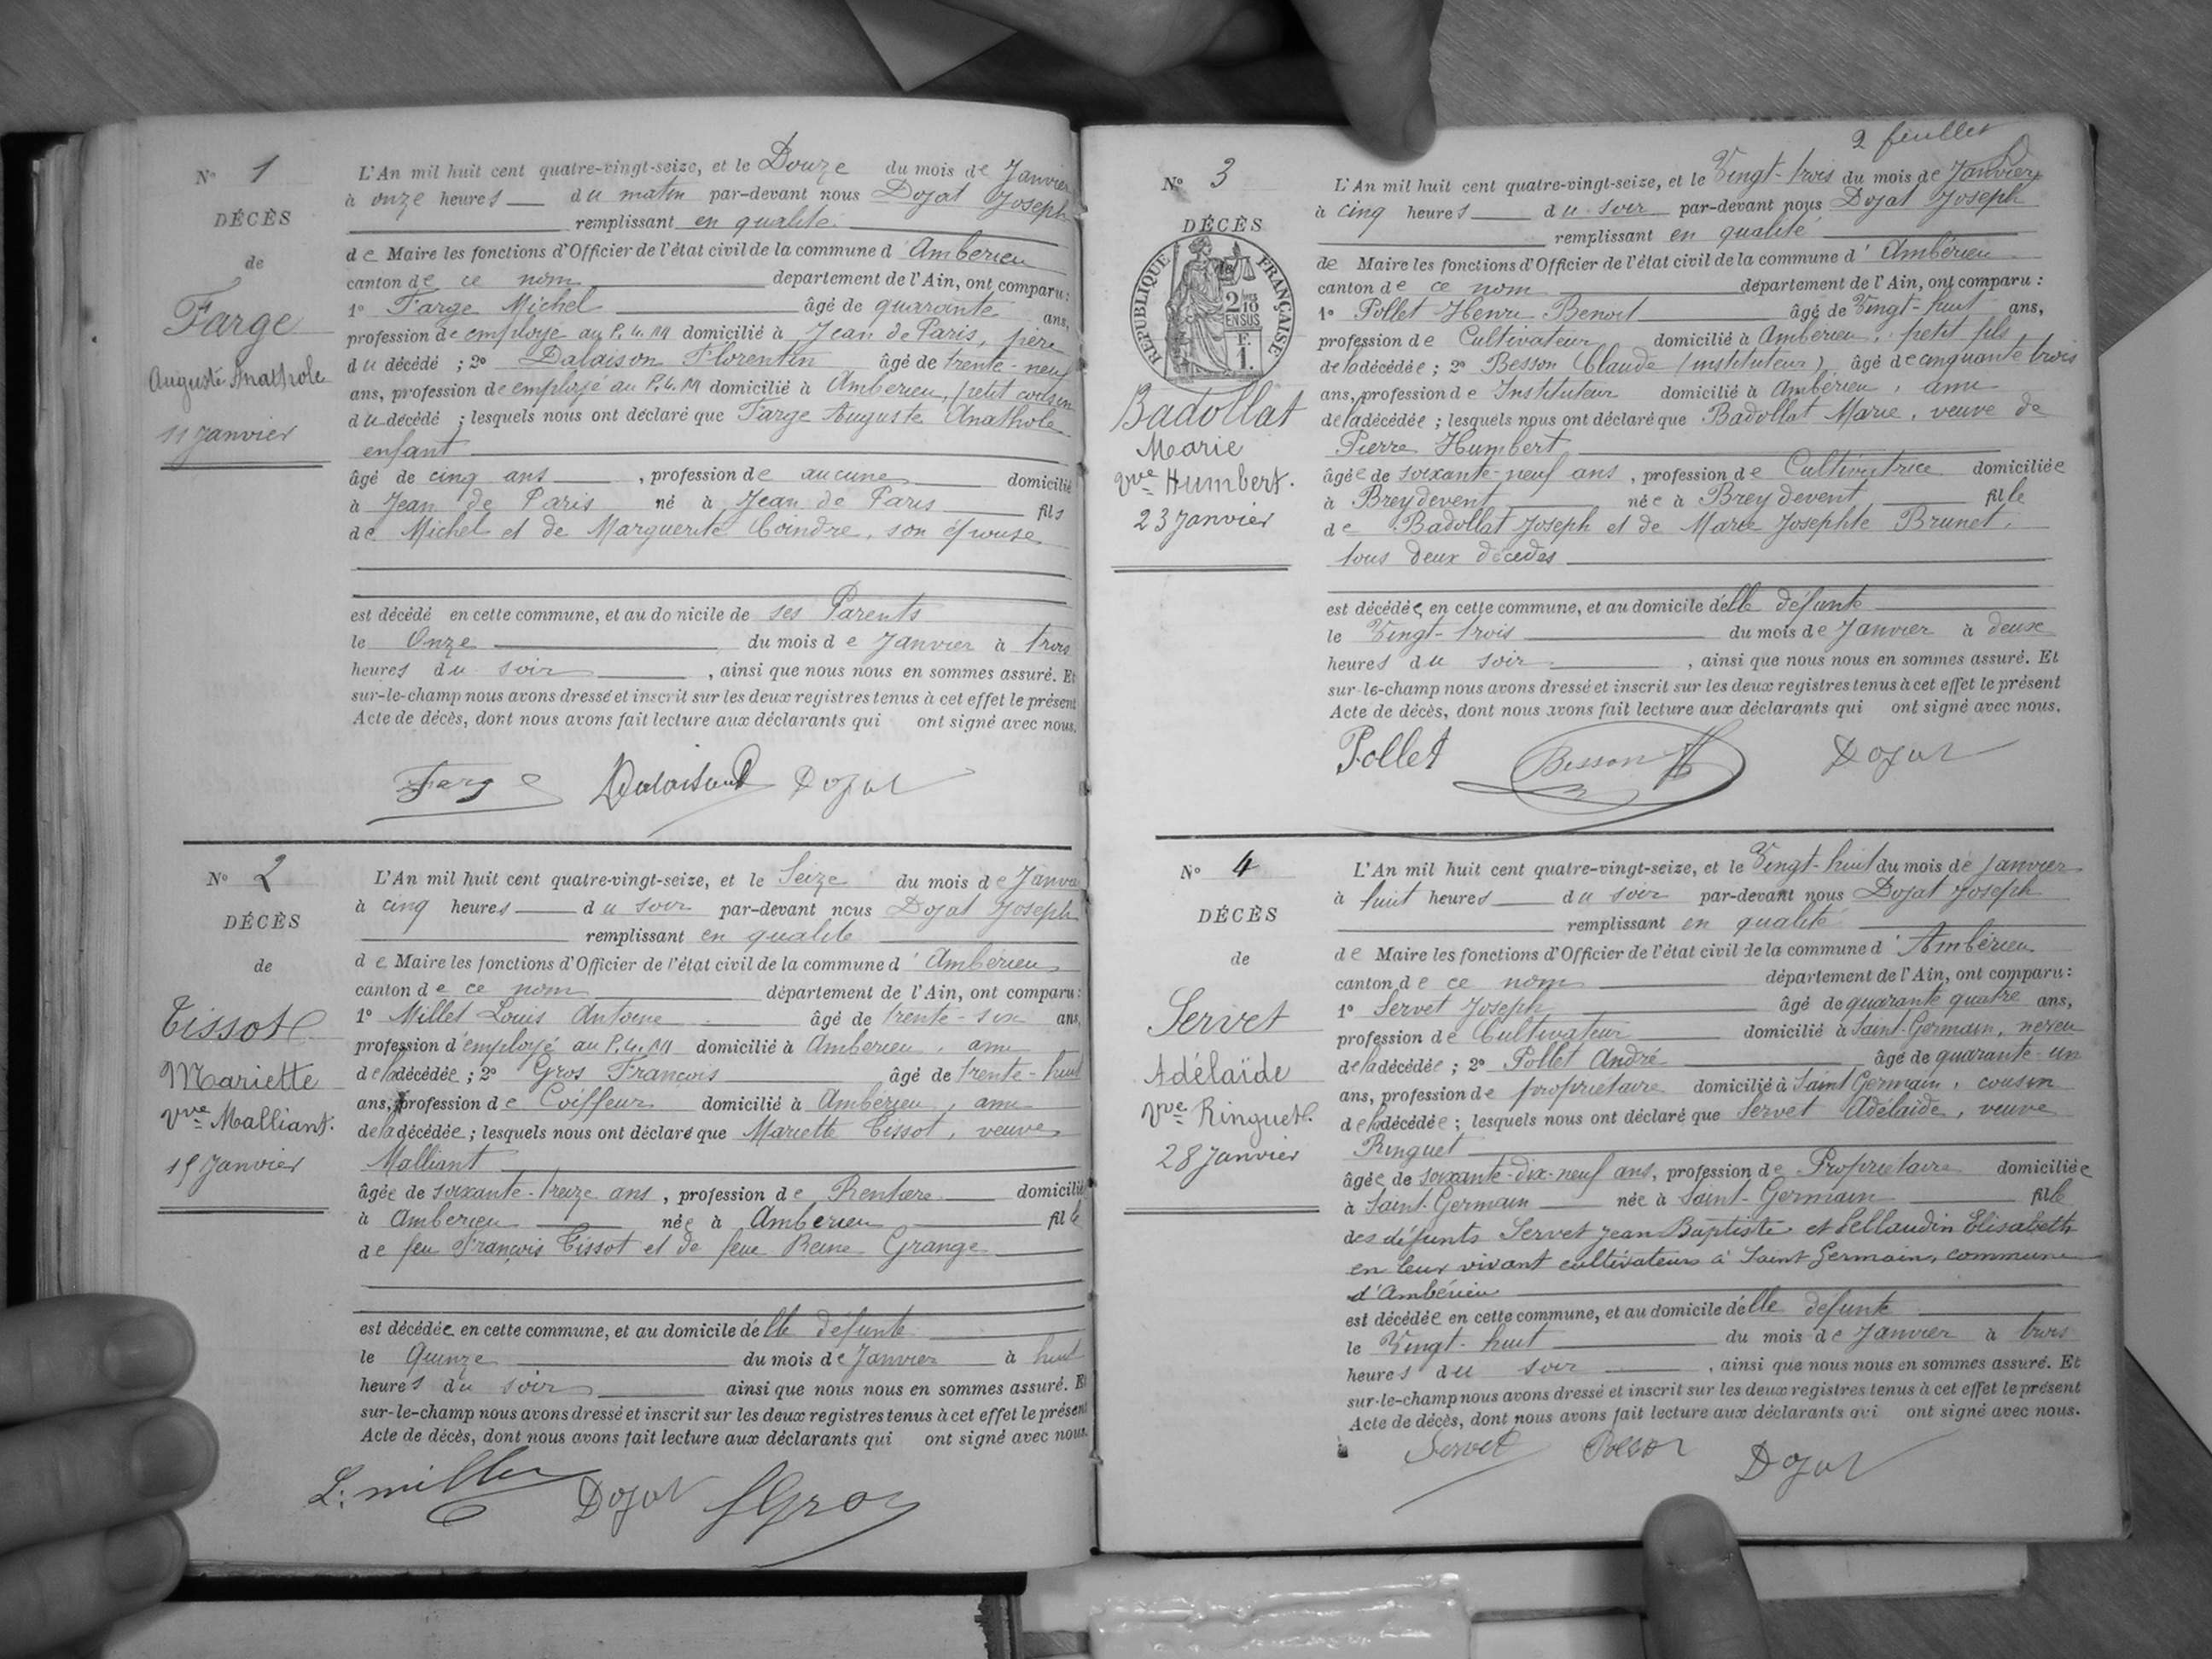 N° 1
DÉCÈS
de
Farge
Auguste Anathole
11 Janvier
L'An mil huit cent quatre-vingt-seize, et le Douze du mois de Janvier
à onze heures du matin par-devant nous Dojat Joseph
remplissant en qualité
de Maire les fonctions d'Officier de l'état civil de la commune d'Ambérieu
canton de ce nom département de l'Ain, ont comparu :
1° Farge Michel âgé de quarante ans,
profession de employé au P.L.M domicilié à Jean de Paris, père
du décédé ; 2° Dalaison Florentin âgé de trente-neuf
ans, profession de employé au P.L.M domicilié à Ambérieu, petit cousin
du décédé ; lesquels nous ont déclaré que Farge Auguste Anathole
enfant
âgé de cinq ans , profession de aucune domicilié
à Jean de Paris né à Jean de Paris fils
de Michel et de Marguerite Coindre, son épouse
est décédé en cette commune, et au domicile de ses Parents
le Onze du mois de Janvier à trois
heures du soir , ainsi que nous nous en sommes assuré. Et
sur-le-champ nous avons dressé et inscrit sur les deux registres tenus à cet effet le présent
Acte de décès, dont nous avons fait lecture aux déclarants qui ont signé avec nous.
Farge Dalaison Dojat
N° 2
DÉCÈS
de
Tissot
Mariette
Vve Malliant.
15 Janvier
L'An mil huit cent quatre-vingt-seize, et le Seize du mois de Janvier
à cinq heures du soir par-devant nous Dojat Joseph
remplissant en qualité
de Maire les fonctions d'Officier de l'état civil de la commune d'Ambérieu
canton de ce nom département de l'Ain, ont comparu :
1° Millet Louis Antoine âgé de trente-six ans,
profession d'employé au P.L.M domicilié à Ambérieu, ami
de la décédée ; 2° Gros François âgé de trente-huit
ans, profession de Coiffeur domicilié à Ambérieu, ami
de la décédée ; lesquels nous ont déclaré que Mariette Tissot, veuve
Malliant
âgée de soixante-treize ans , profession de Rentière domicilié
à Ambérieu née à Ambérieu fille
de feu François Tissot et de feue Reine Grange
est décédée en cette commune, et au domicile de lle défunte
le Quinze du mois de Janvier à huit
heures du soir ainsi que nous nous en sommes assuré. Et
sur-le-champ nous avons dressé et inscrit sur les deux registres tenus à cet effet le présent
Acte de décès, dont nous avons fait lecture aux déclarants qui ont signé avec nous.
L. Millet Dojat Gros
2 feuillet
N° 3
DÉCÈS
RÉPUBLIQUE FRANÇAISE
2/10 EN SUS
F.
1.
Badollat
Marie
Vve Humbert.
23 Janvier
L'An mil huit cent quatre-vingt-seize, et le Vingt-trois du mois de Janvier
à cinq heures du soir par-devant nous Dojat Joseph
remplissant en qualité
de Maire les fonctions d'Officier de l'état civil de la commune d'Ambérieu
canton de ce nom département de l'Ain, ont comparu :
1° Pollet Henri Benoit âgé de Vingt-huit ans,
profession de Cultivateur domicilié à Ambérieu, petit fils
de la décédée ; 2° Besson Claude (instituteur) âgé de cinquante trois
ans, profession de Instituteur domicilié à Ambérieu, ami
de la décédée ; lesquels nous ont déclaré que Badollat Marie, veuve de
Pierre Humbert
âgée de soixante-neuf ans , profession de Cultivatrice domiciliée
à Breydevent née à Breydevent fille
de Badollat Joseph et de Marie Josephte Brunet,
tous deux décédés
est décédée en cette commune, et au domicile de lle défunte
le Vingt-trois du mois de Janvier à deux
heures du soir , ainsi que nous nous en sommes assuré. Et
sur-le-champ nous avons dressé et inscrit sur les deux registres tenus à cet effet le présent
Acte de décès, dont nous avons fait lecture aux déclarants qui ont signé avec nous.
Pollet Besson Dojat
N° 4
DÉCÈS
de
Servet
Adélaïde
Vve Ringuet.
28 Janvier
L'An mil huit cent quatre-vingt-seize, et le Vingt-huit du mois de Janvier
à huit heures du soir par-devant nous Dojat Joseph
remplissant en qualité
de Maire les fonctions d'Officier de l'état civil de la commune d'Ambérieu
canton de ce nom département de l'Ain, ont comparu :
1° Servet Joseph âgé de quarante quatre ans,
profession de Cultivateur domicilié à Saint-Germain, neveu
de la décédée ; 2° Pollet André âgé de quarante-un
ans, profession de propriétaire domicilié à Saint Germain, cousin
de la décédée ; lesquels nous ont déclaré que Servet Adélaïde, veuve
Ringuet
âgée de soixante-dix-neuf ans, profession de Propriétaire domiciliée
à Saint-Germain née à Saint-Germain fille
des défunts Servet Jean Baptiste et Pellaudin Elisabeth
en leur vivant cultivateurs à Saint Germain, commune
d'Ambérieu
est décédée en cette commune, et au domicile de lle défunte
le Vingt-huit du mois de Janvier à trois
heures du soir , ainsi que nous nous en sommes assuré. Et
sur-le-champ nous avons dressé et inscrit sur les deux registres tenus à cet effet le présent
Acte de décès, dont nous avons fait lecture aux déclarants qui ont signé avec nous.
Servet Dojat